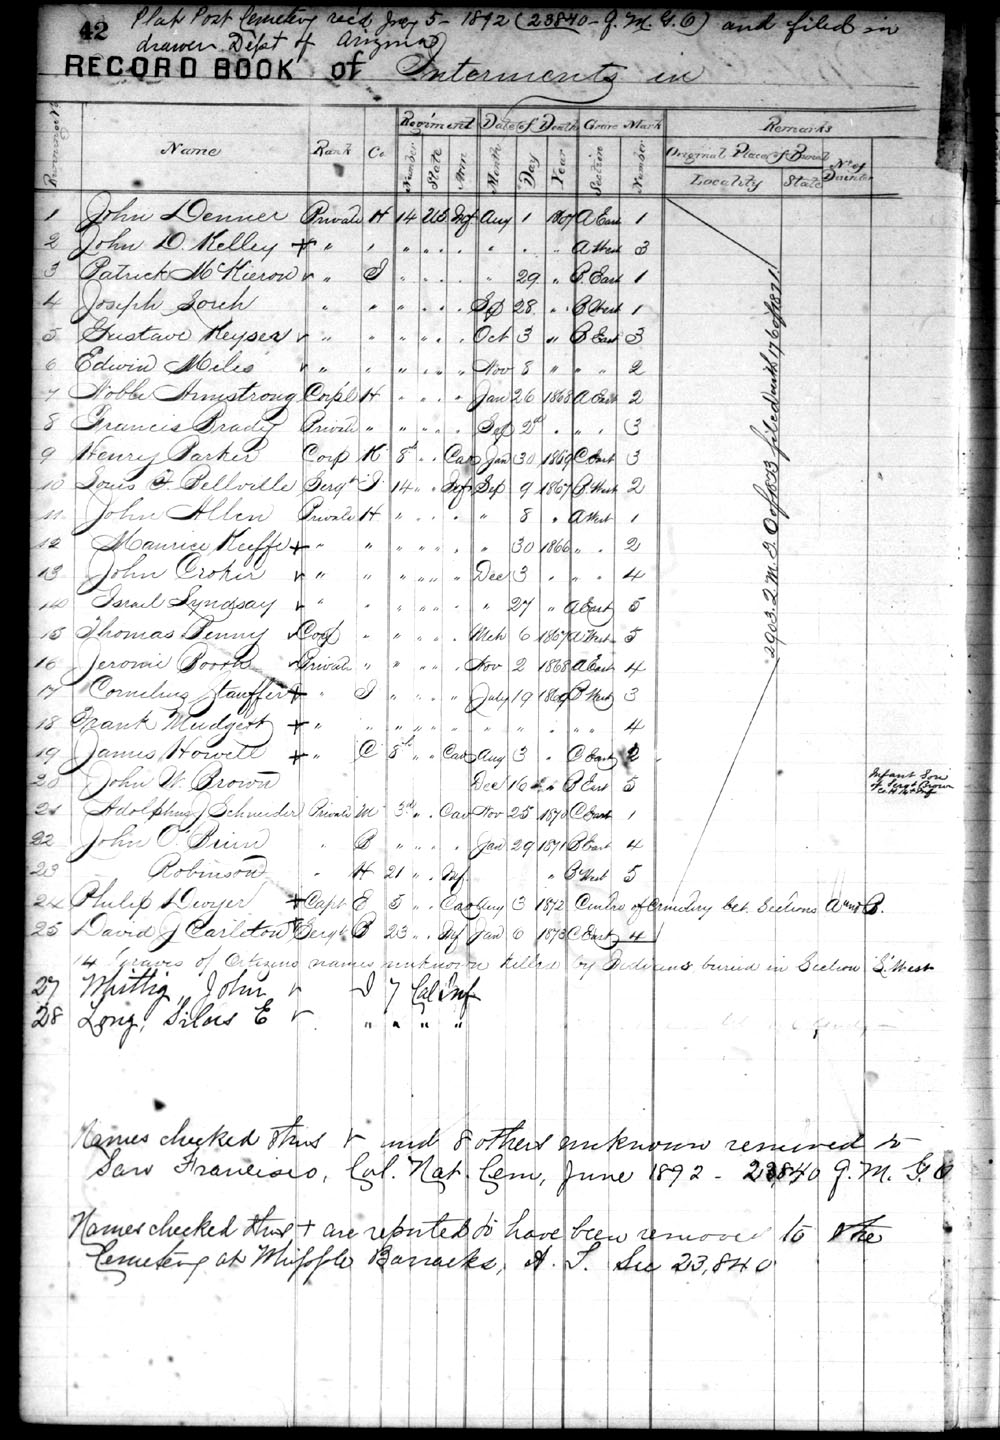 42
Plat Post Cemetery rec'd Jany 5 - 1892 (23840 - Q. M. G. O) and filed in
drawer Dept of Arizona
RECORD BOOK of Interments in
Name Rank Co Regiment Date of Death Grave Mark Remarks
Number State Arm Month Day Year Section Number Original Place of Burial
Locality State
1 John Denner Private H 14 U.S. Inf Aug 1 1867 A East 1
2 John D. Kelley + " " " . . " . . A West 3
3 Patrick McKieron v " I " . . . " 29 " B. East 1
4 Joseph " " " . . . Sep 28 " B West 1
5 Gustave Keyser v " " " " . . Oct 3 " B East 3
6 Edwin Miles v " " " . " " Nov 8 " " " 2
7 Hobbe Armstrong Corpl H " . " " Jan 26 1868 A East 2
8 Francis Brady Private " " . . . Sep 2d " " . 3
9 Henry Parker Corp K 8th " . Cav Jan 30 1869 C East 3
10 Louis F. Bellville Sergt I 14 " " Inf Sep 9 1867 B West 2
11 John Allen Private H " " . . " 8 " A West 1
12 Maurice Keiffe + " " " " " . " 30 1866 " . 2
13 John Croker v " " " " " . Dec 3 " " . 4
14 Israel Lyndsay v " " " " " . " 27 " A East 5
15 Thomas Penny v Corp " " . . . Mch 6 1867 A West 5
16 Jerome Booth v Private " " . . . Nov 2 1868 A East 4
17 Cornelius Stauffer + " I " . " " July 19 1869 B West 3
18 Frank Mudgett + " " " " " " " " . " " 4
19 James Howell + " C 8th " . Cav Aug 3 " C East 2
20 John W. Brown Dec 16 " B East 5 Infant Son
of Sergt Brown
21 Adolphus J Schneider Private M 3rd " . Cav Nov 25 1870 C East 1
22 John O'Brien " B " . . . Jan 29 1871 B East 4
23 Robinson " H 21 " . Inf. " B West 5
24 Philip Dwyer + Capt E 5 " . Cav Aug 3 1872 Centre of Cemetery bet. Sections A and B.
25 David J Carleton + Sergt B 23 " . Inf Jan 6 1873 C East 4
14 graves of Citizens names unknown killed by Indians buried in Section B. West
27 Mittig, John v I 7 Cal Inf
28 Long, Silas E v " " " "
2903. Q. M. G. O of 1873 filed with 176 of 1871.
Names checked thus v and 8 others unknown removed to
San Francisco, Cal. Nat. Cem, June 1892 - 23840 Q. M. G. O
Names checked thus + are reported to have been removed to the
Cemetery at Whipple Barracks, A. T. See 23,840